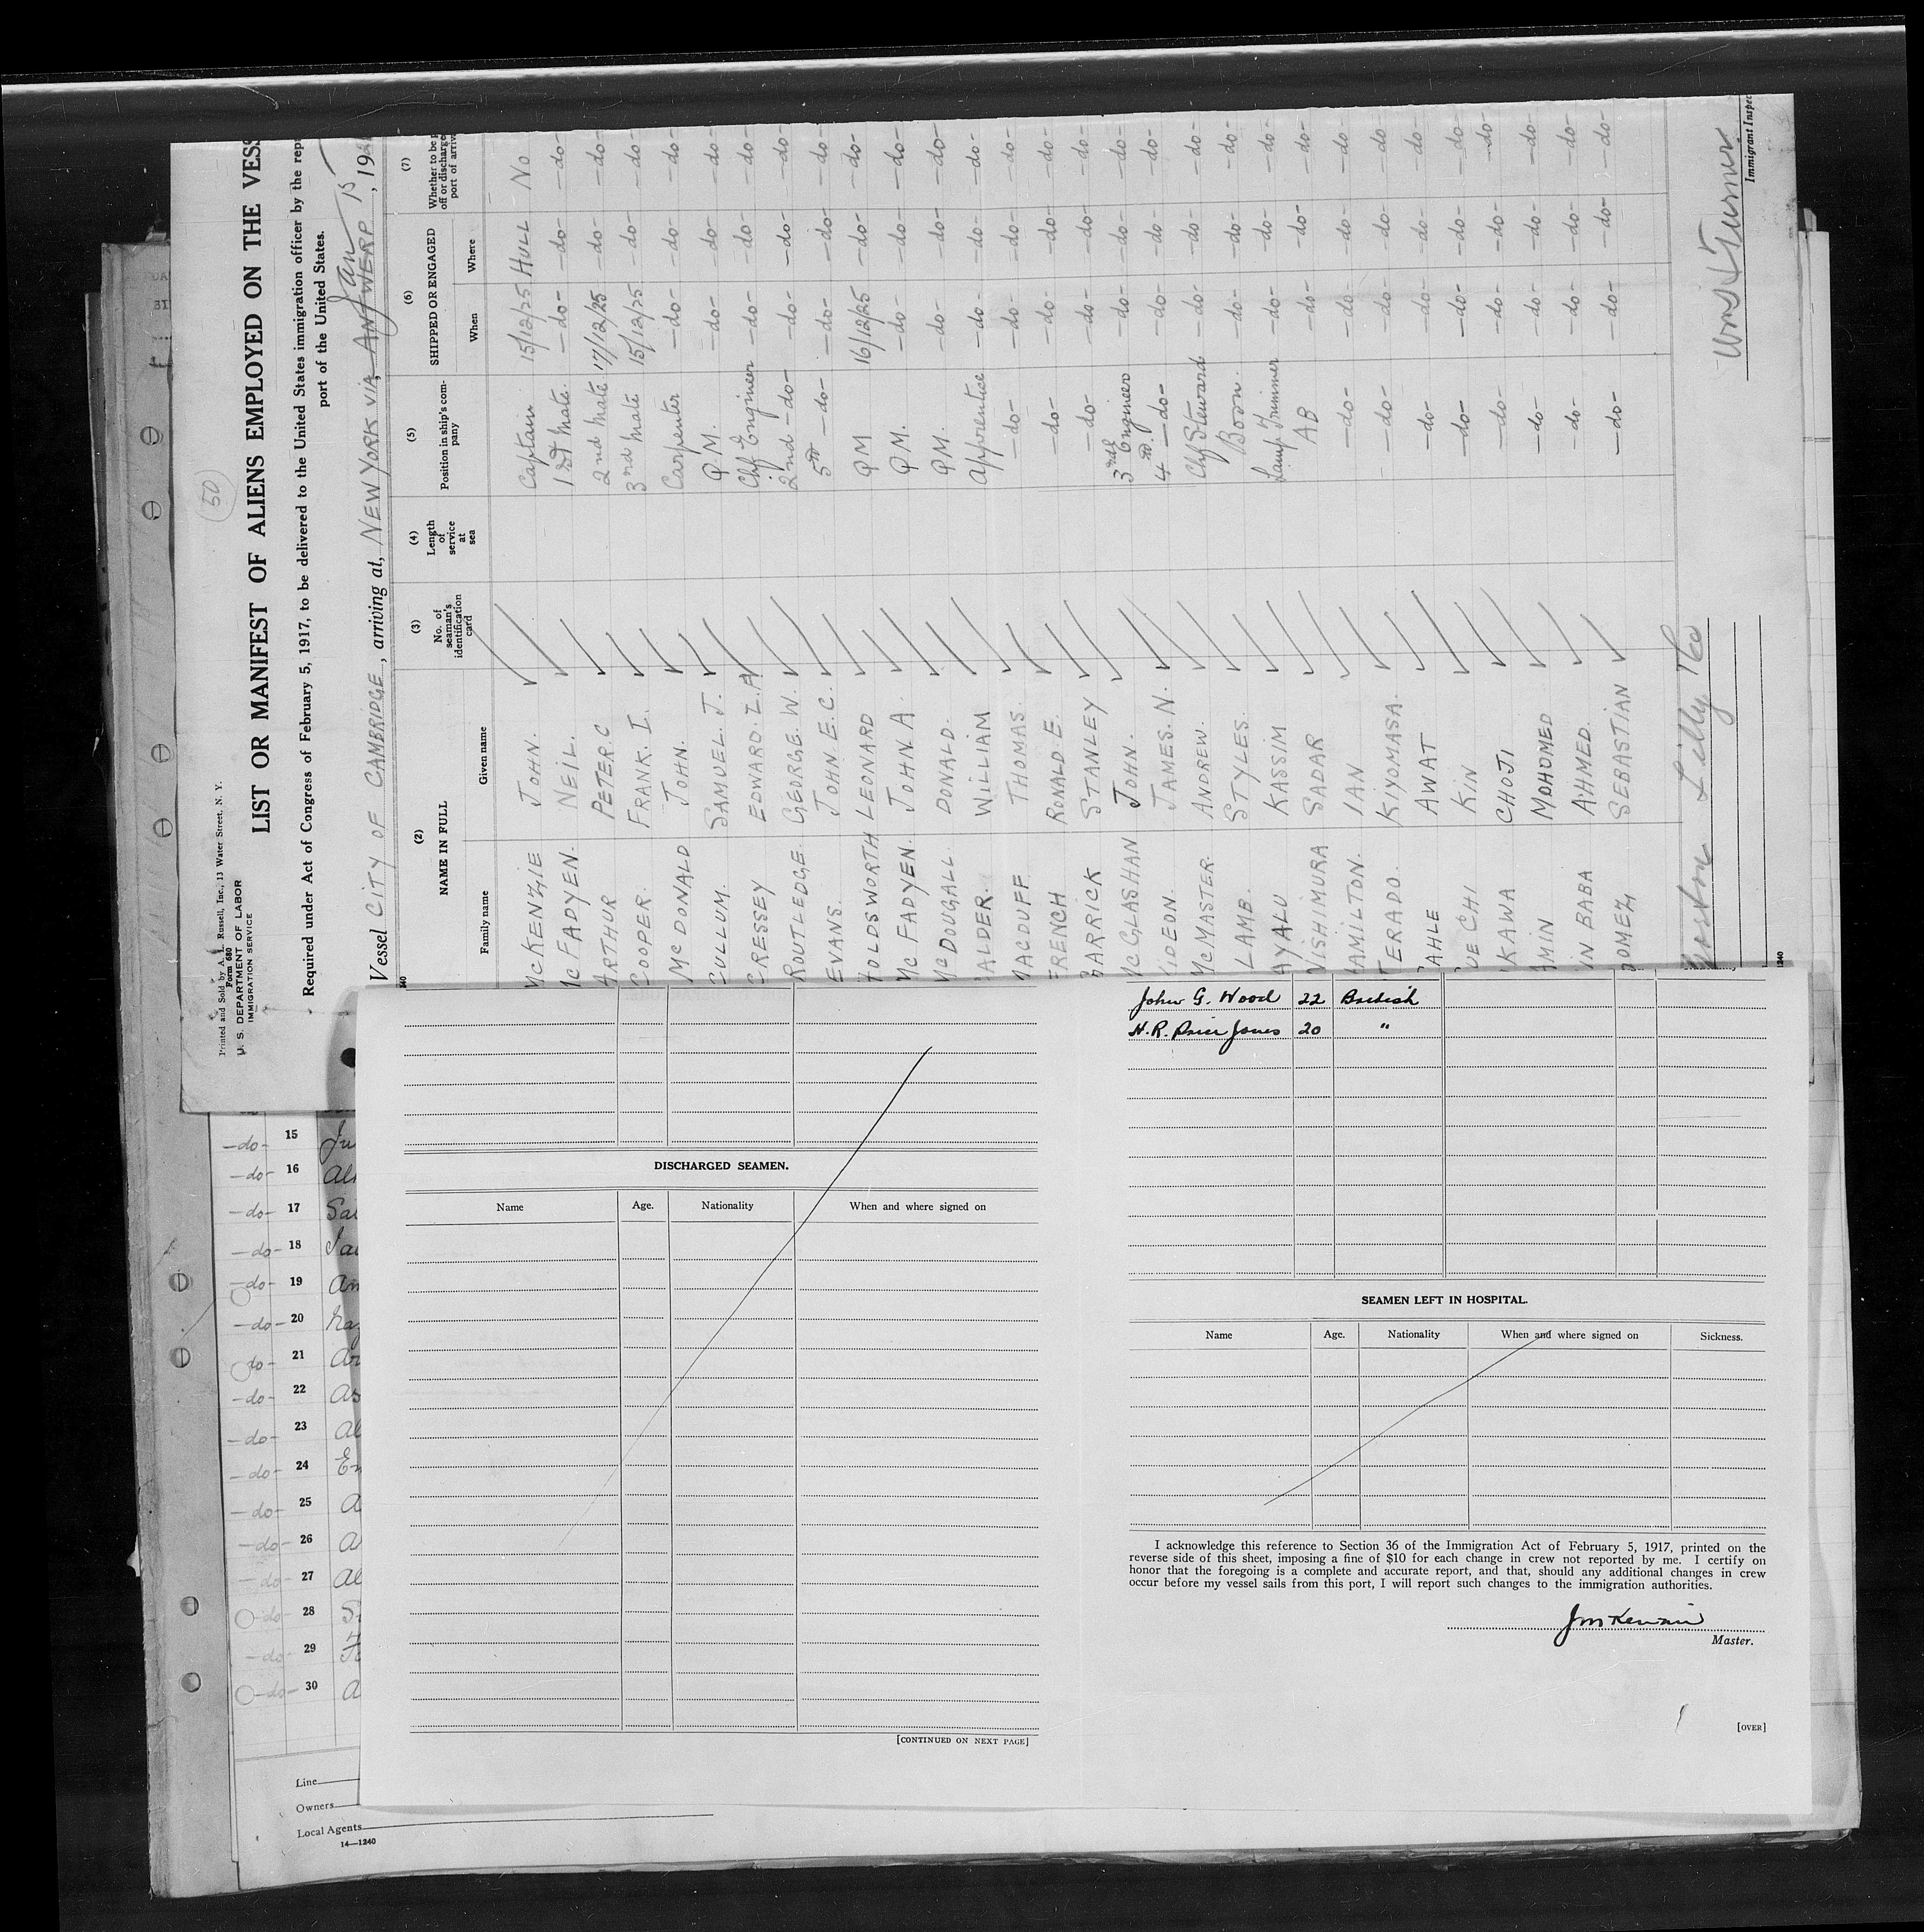 50
Printed and Sold by A. L. Russell, Inc., 13 Water Street, N. Y.
Form 680
U. S. DEPARTMENT OF LABOR
IMMIGRATION SERVICE
LIST OR MANIFEST OF ALIENS EMPLOYED ON THE VESS
Required under Act of Congress of February 5, 1917, to be delivered to the United States immigration officer by the rep
port of the United States.
Vessel CITY OF CAMBRIDGE, arriving at, NEW YORK VIA ANTWERP Jan 15, 19
(2) NAME IN FULL
Family name Given name
(3) No. of seaman's identification card
(4) Length of service at sea
(5) Position in ship's company
(6) SHIPPED OR ENGAGED
When Where
(7) Whether to be
off or discharge
port of arriv
McKENZIE JOHN. Captain 15/12/25 HULL No
McFADYEN. NEIL. 1st Mate. -do- -do- -do-
ARTHUR PETER.C 2nd Mate 17/12/25 -do- -do-
COOPER. FRANK. I. 3rd Mate 15/12/25 -do- -do-
McDONALD JOHN. Carpenter -do- -do- -do-
CULLUM. SAMUEL. J. Q.M. -do- -do- -do-
CRESSEY EDWARD. L.A Chf Engineer -do- -do- -do-
ROUTLEDGE. GEORGE. W. 2nd -do- -do- -do- -do-
EVANS. JOHN E.C. 5th -do- -do- -do- -do-
HOLDSWORTH LEONARD QM 16/12/25 -do- -do-
McFADYEN. JOHN.A. Q.M. -do- -do- -do-
McDOUGALL. DONALD. QM. -do- -do- -do-
ALDER. WILLIAM Apprentice -do- -do- -do-
MACDUFF THOMAS. -do- -do- -do- -do-
FRENCH RONALD E. -do- -do- -do- -do-
BARRICK STANLEY -do- -do- -do- -do-
McGLASHAN JOHN. 3rd Engineer -do- -do- -do-
IDEON. JAMES. N. 4th -do- -do- -do- -do-
McMASTER. ANDREW. Chf Steward -do- -do- -do-
LAMB. STYLES. Bosn. -do- -do- -do-
AYALU KASSIM Lamp Trimmer -do- -do- -do-
NISHIMURA SADAR AB -do- -do- -do-
HAMILTON. IAN -do- -do- -do- -do-
TERADO. KIYOMASA. -do- -do- -do- -do-
AHLE AWAT -do- -do- -do- -do-
UE CHI KIN -do- -do- -do- -do-
KAWA CHOJI -do- -do- -do- -do-
AMIN MOHOMED -do- -do- -do- -do-
IN BABA AHMED. -do- -do- -do- -do-
GOMEZ SEBASTIAN -do- -do- -do- -do-
Immigrant Inspec
-do- 15 Ju
-do- 16 Al
-do- 17 Sai
-do- 18
-do- 19 Am
-do- 20
-do- 21
-do- 22 As
-do- 23 Al
-do- 24 Em
-do- 25 A
-do- 26 A
-do- 27 Al
-do- 28
-do- 29
-do- 30 A
Line
Owners
Local Agents
14—1240
DISCHARGED SEAMEN.
Name Age. Nationality When and where signed on
[CONTINUED ON NEXT PAGE]
John G. Wood 22 British
H.R. Price Jones 20 "
SEAMEN LEFT IN HOSPITAL.
Name Age. Nationality When and where signed on Sickness.
I acknowledge this reference to Section 36 of the Immigration Act of February 5, 1917, printed on the
reverse side of this sheet, imposing a fine of $10 for each change in crew not reported by me. I certify on
honor that the foregoing is a complete and accurate report, and that, should any additional changes in crew
occur before my vessel sails from this port, I will report such changes to the immigration authorities.
JMcKenzie
Master.
[OVER]